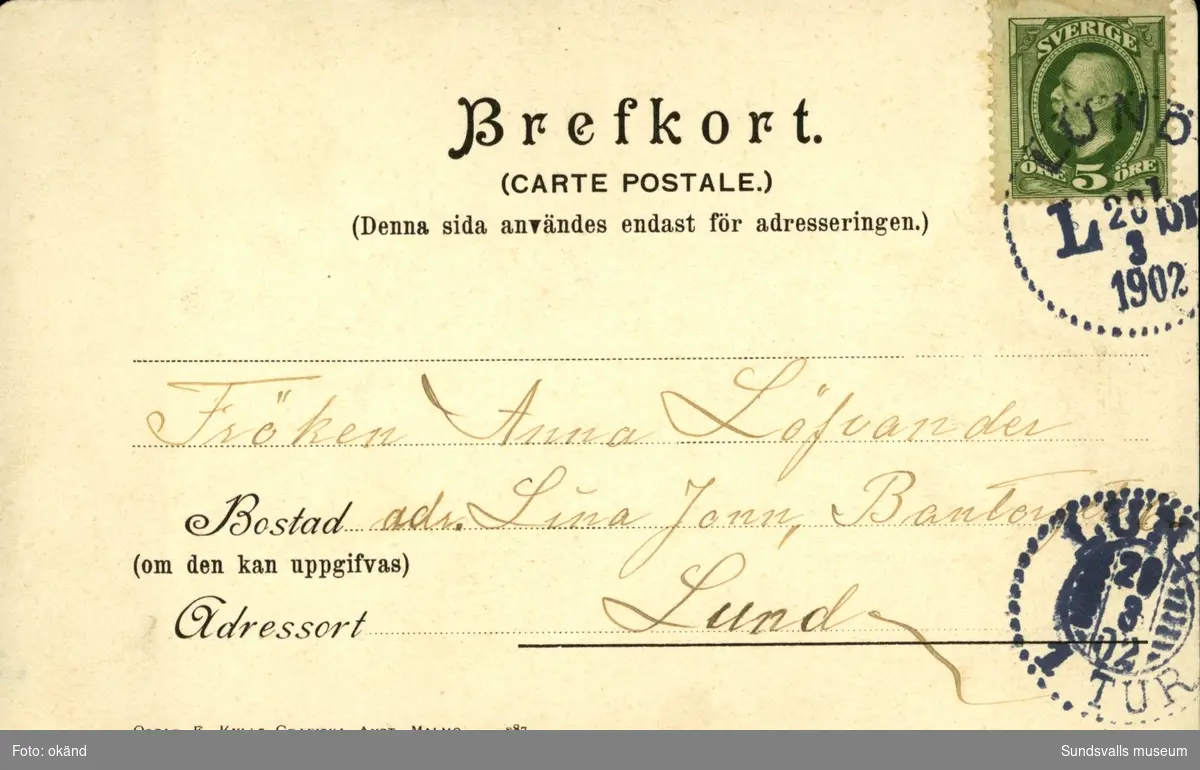 SVERIGE
ÖRE 5 ÖRE
LUND
L 20 1
3
1902
Brefkort.
(CARTE POSTALE.)
(Denna sida användes endast för adresseringen.)
Fröken Anna Löfvander
Bostad adr. Lina Jonn,
(om den kan uppgifvas)
Adressort Lund
LUN
20
3
02
1 TUR
Foto: okänd
Sundsvalls Museum